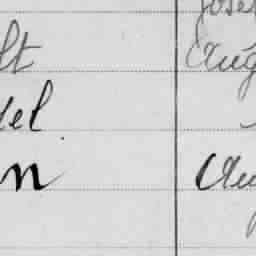 Josef
lt Aug
del
n Au